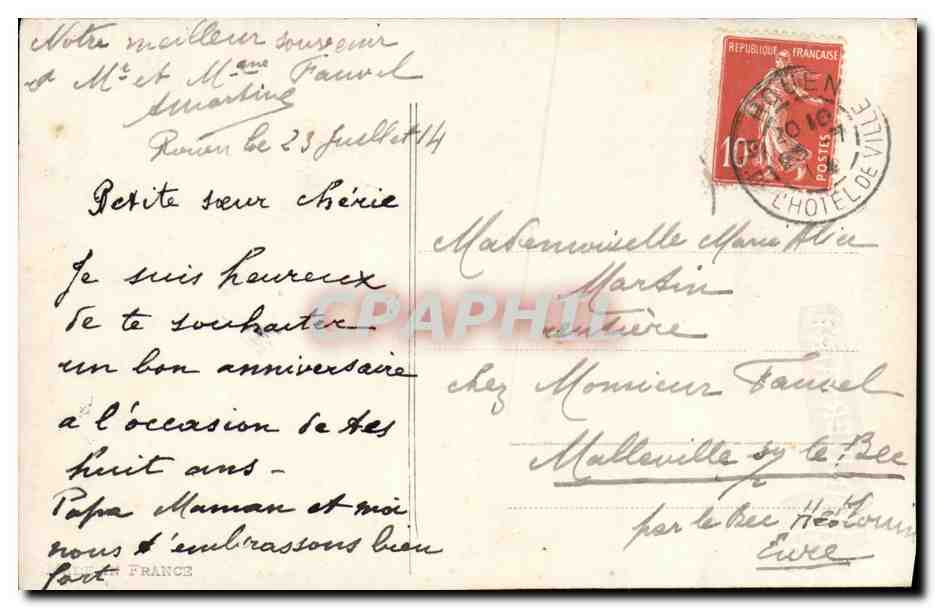 Notre meilleur souvenir
à Mr et Mme Fauvel
AMartin
Rouen le 23 Juillet 14
Petite sœur chérie
Je suis heureux
de te souhaiter
un bon anniversaire
a l'occasion de tes
huit ans -
Papa Maman et moi
nous t'embrassons bien
fort
MADE IN FRANCE
REPUBLIQUE FRANÇAISE
10c
POSTES
ROUEN
L'HOTEL DE VILLE
Mademoiselle Marie Alice
Martin
rentière
chez Monsieur Fauvel
Malleville sur le Bec
par le Bec Hellouin
Eure
CPAPHIL